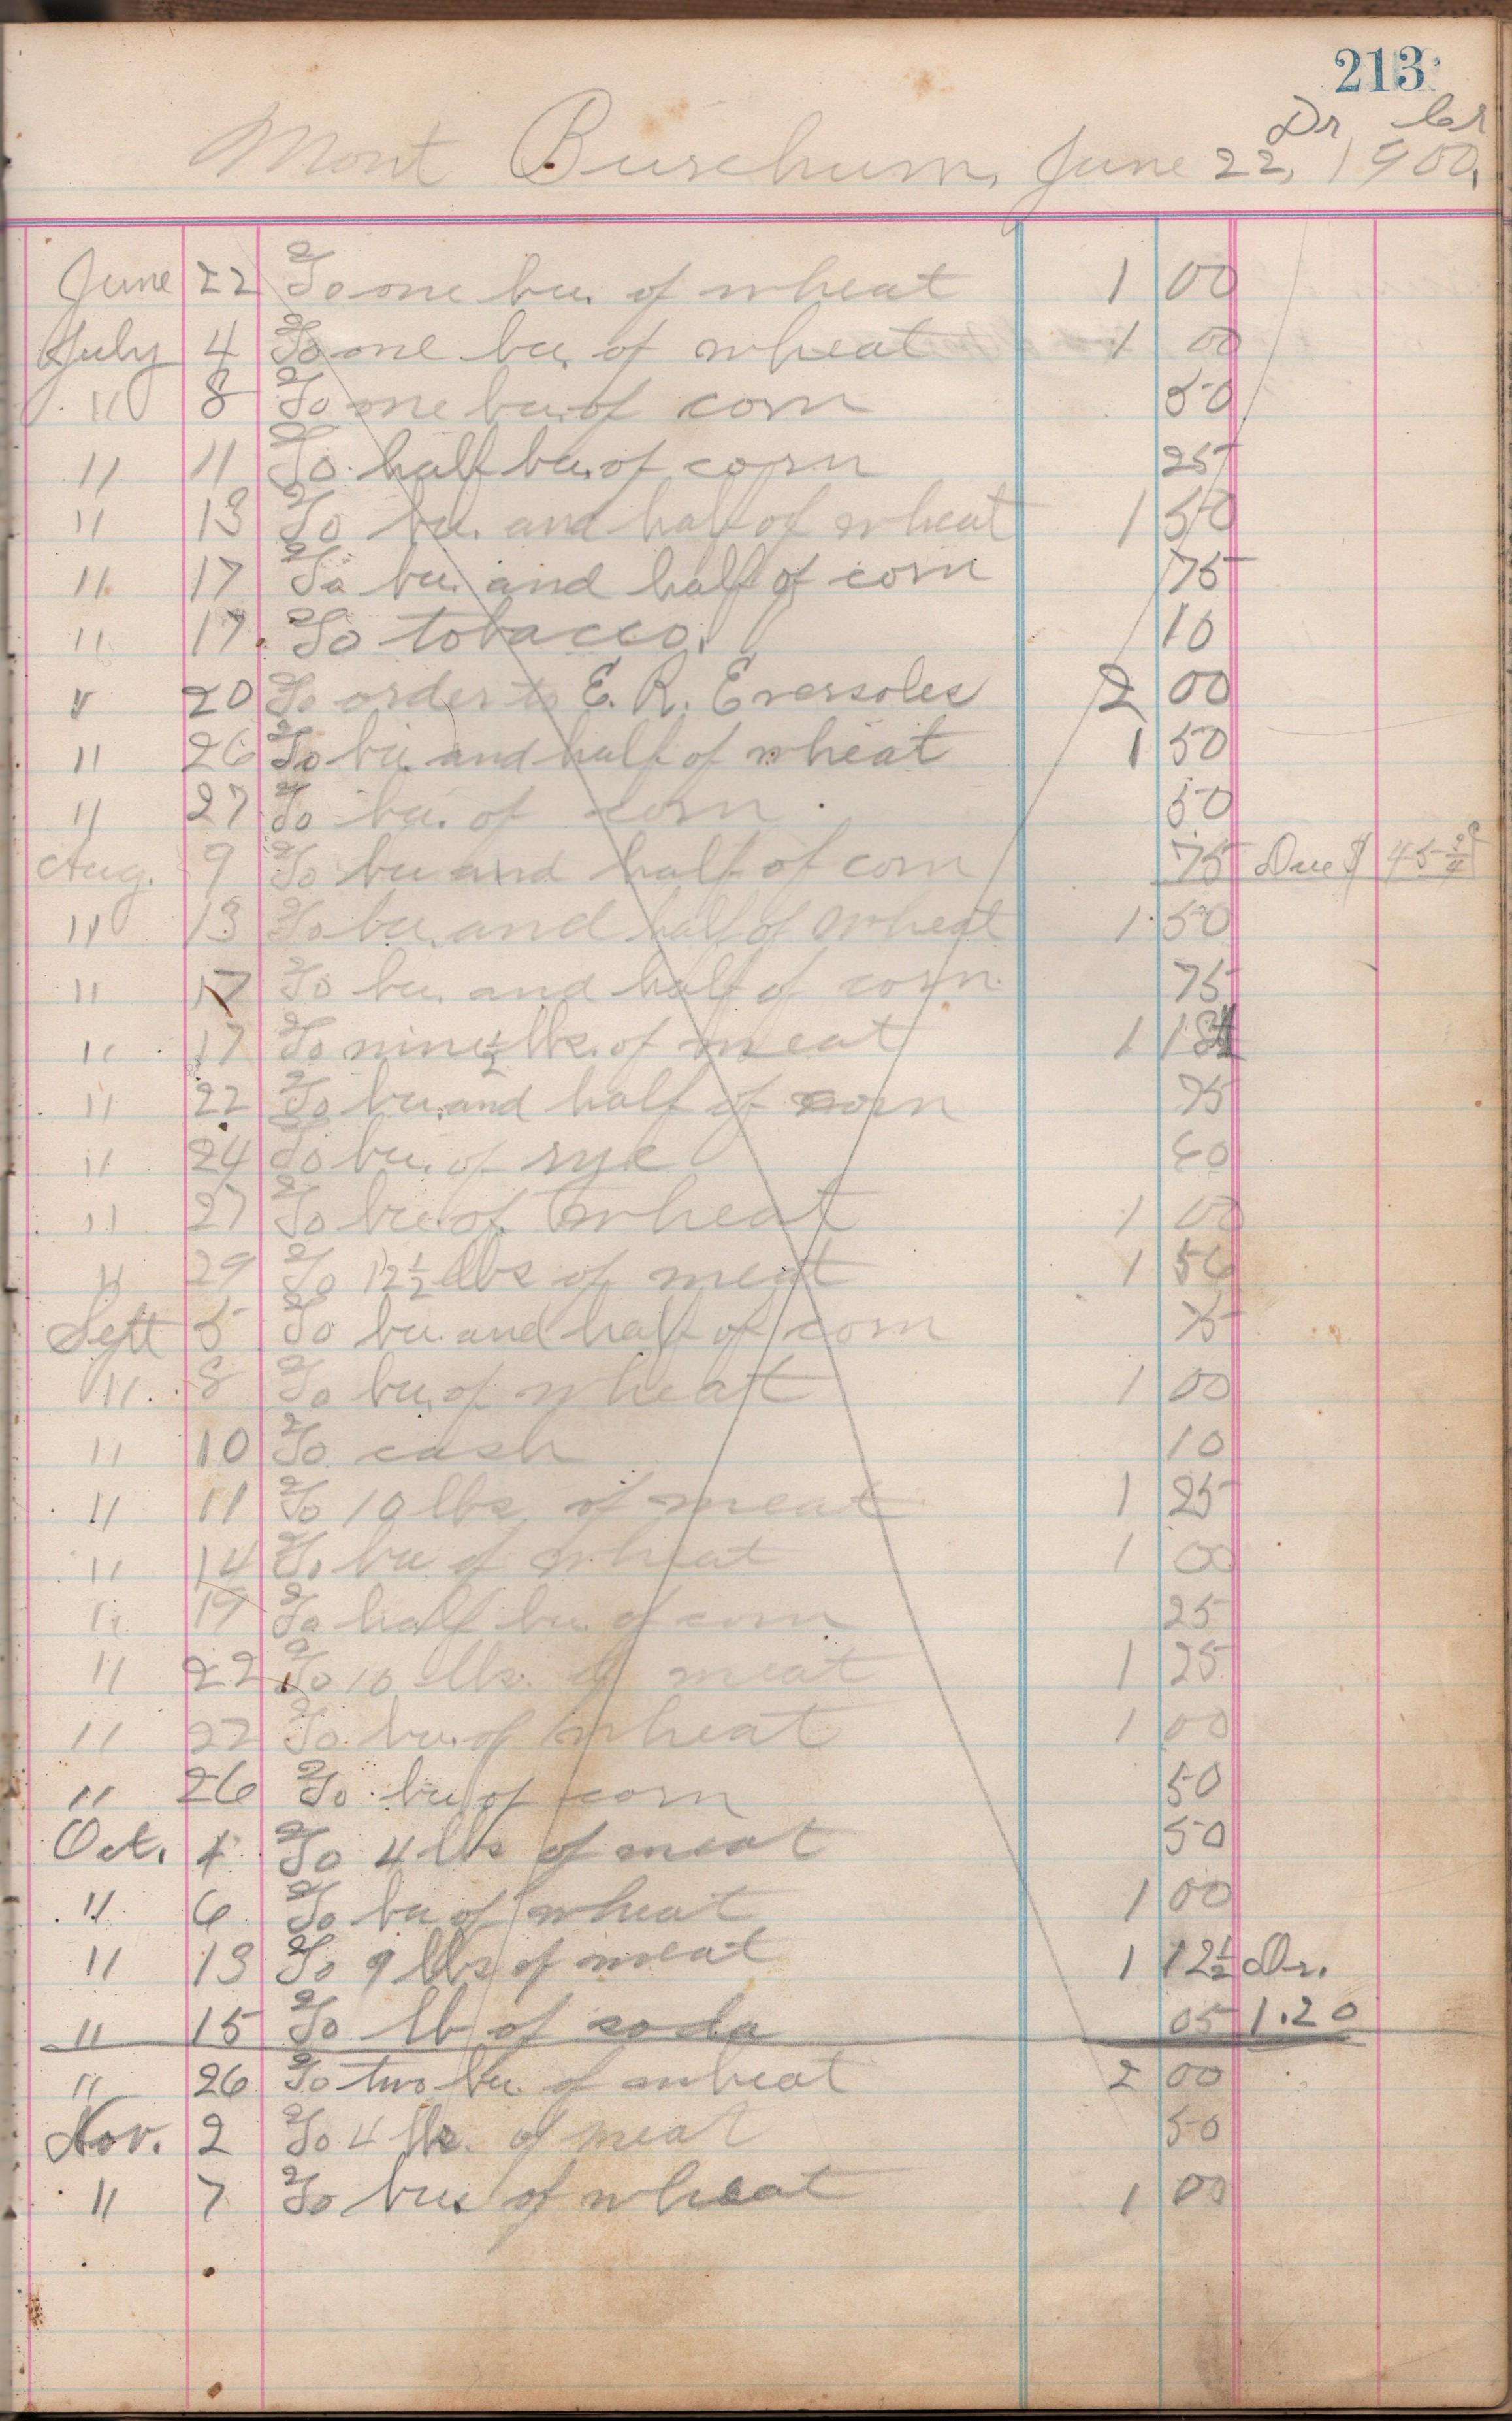 213
Dr Cr
Mont Burchum, June 22, 1900.
June 22 To one bu. of wheat 1 00
July 4 To one bu. of wheat 1 00
" 8 To one bu. of corn 50
" 11 To half bu. of corn 25
" 13 To bu. and half of wheat 1 50
" 17 To bu. and half of corn 75
" 17. To tobacco. 10
" 20 To order to E. R. Eversoles 2 00
" 26 To bu. and half of wheat 1 50
" 27 To bu. of corn 50
Aug. 9 To bu and half of corn 75 Due $
" 13 To bu. and half of wheat 1 50
" 17 To bu. and half of corn 75
" 17 To nine ½ lbs. of meat 1 18
" 22 To bu. and half of corn 75
" 24 To bu. of rye 60
" 27 To bu. of wheat 1 00
" 29 To 12½ lbs of meat 1 56
Sept 5 To bu. and half of corn 75
" 8 To bu. of wheat 1 00
" 10 To cash 10
" 11 To 10 lbs of meat 1 25
" 14 To bu of wheat 1 00
" 19 To half bu. of corn 25
" 22 To 10 lbs. of meat 1 25
" 22 To bu. of wheat 1 00
" 26 To bu of corn 50
Oct. 1 To 4 lbs of meat 50
" 6 To bu of wheat 1 00
" 13 To 9 lbs of meat 1 12½ Dr.
" 15 To lb of soda 05 1.20
" 26 To two bu. of wheat 2 00
Nov. 2 To 4 lbs. of meat 50
" 7 To bu. of wheat 1 00